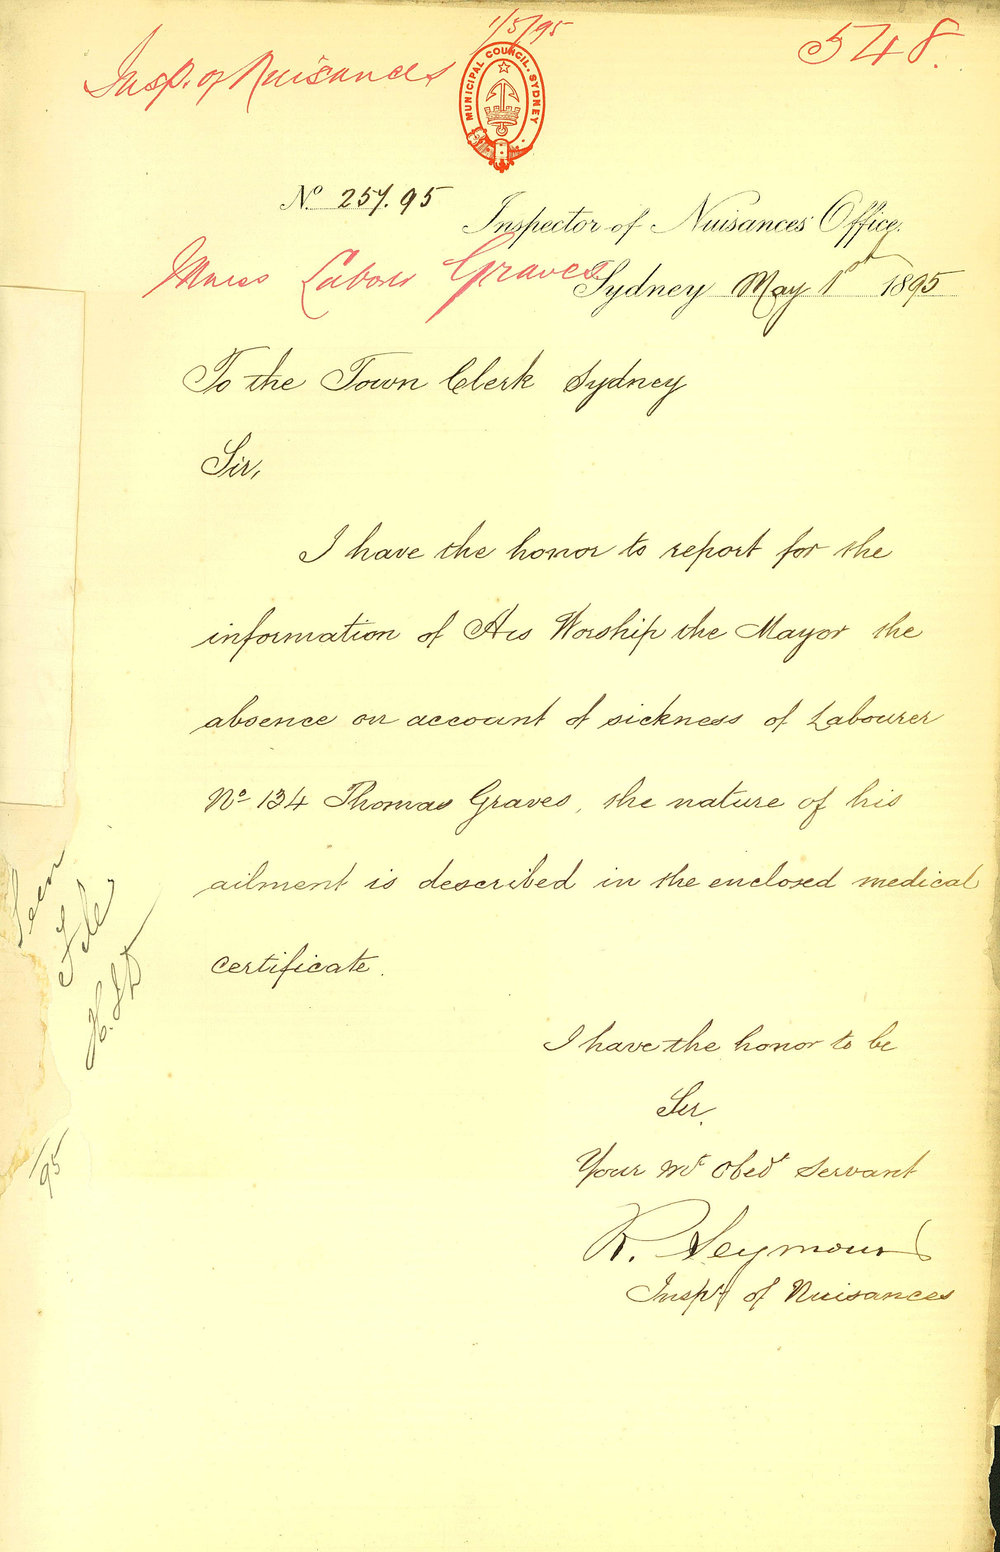 1/5/95
548.
Insp. of Nuisances
MUNICIPAL COUNCIL. SYDNEY
No. 257.95
Inspector of Nuisances' Office.
Labour Graves
Sydney May 1st 1895
To the Town Clerk Sydney
Sir,
I have the honor to report for the
information of His Worship the Mayor the
absence on account of sickness of Labourer
No 134 Thomas Graves, the nature of his
ailment is described in the enclosed medical
certificate.
I have the honor to be
Sir,
Your Mt Obedt Servant
R. Seymour
Inspr of Nuisances
Seen
File
/95